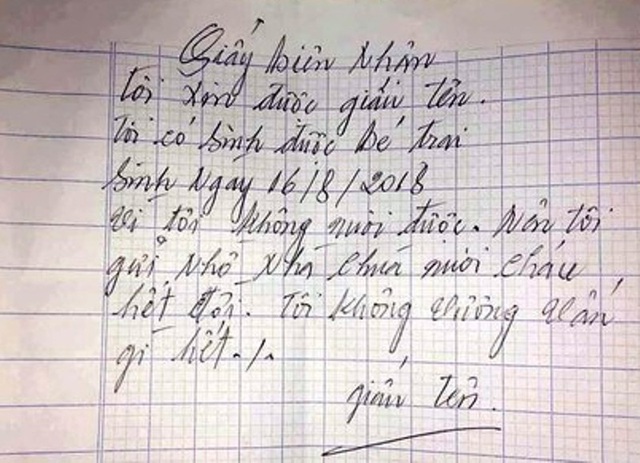 Giấy biên nhận
Tôi xin được giấu tên.
Tôi có sinh được bé trai
sinh ngày 16/8/2018
Vì tôi không nuôi được. Nên tôi
gửi nhờ nhà chùa nuôi cháu
hết đời. Tôi không vướng vấn
gì hết./.
giấu tên.